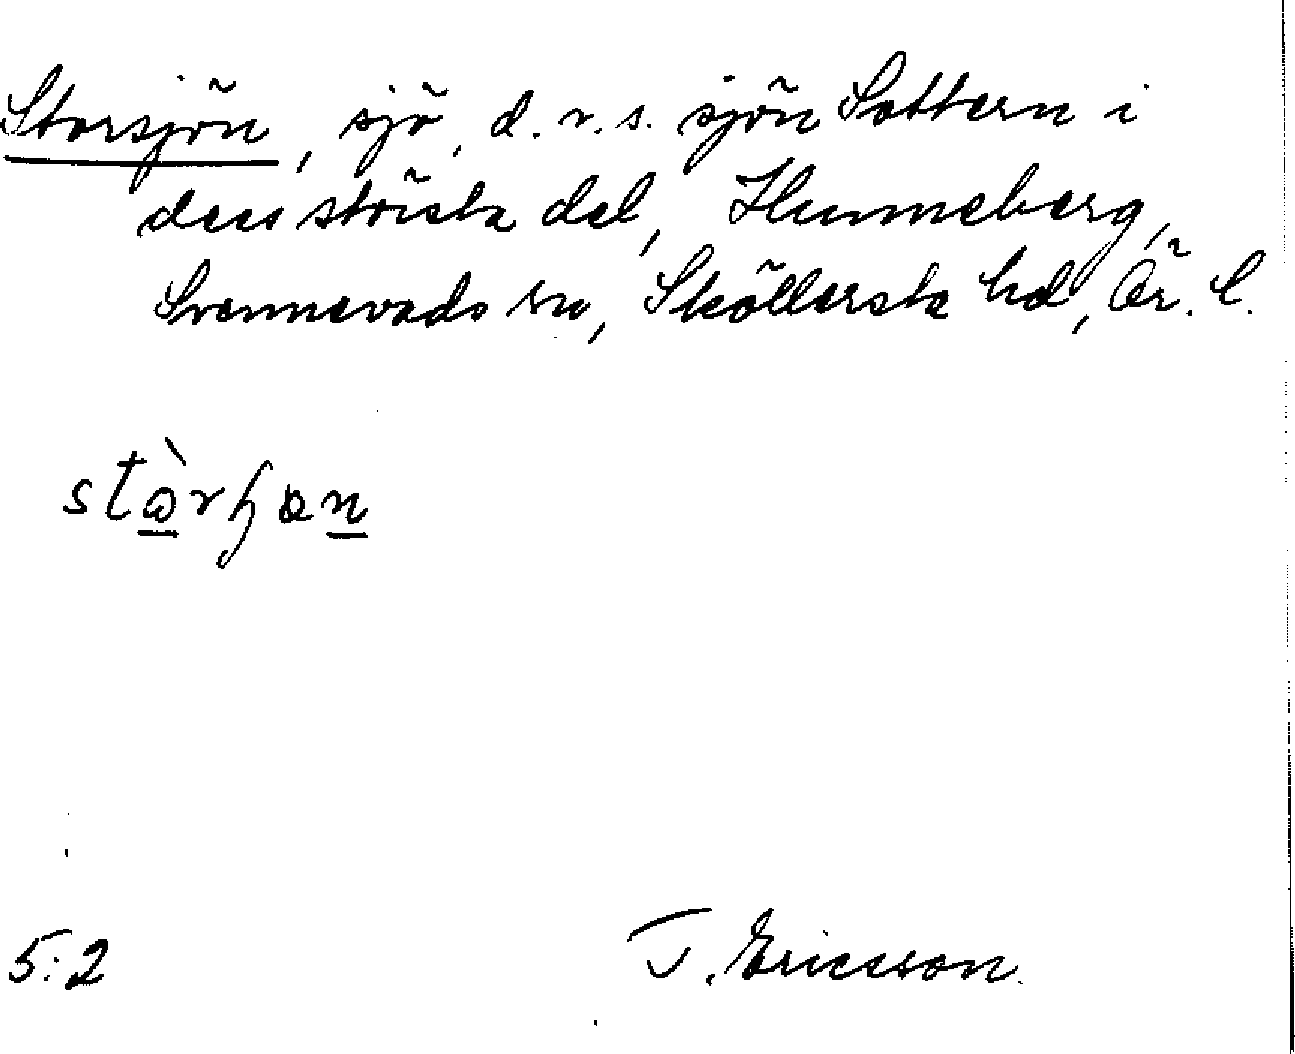 Storsjön, sjö, d.v.s. sjön Sottern i
dess största del, Hunneberg,
Svennevads sn, Sköllersta hd, Ör. l.
5:2
T. Ericsson.